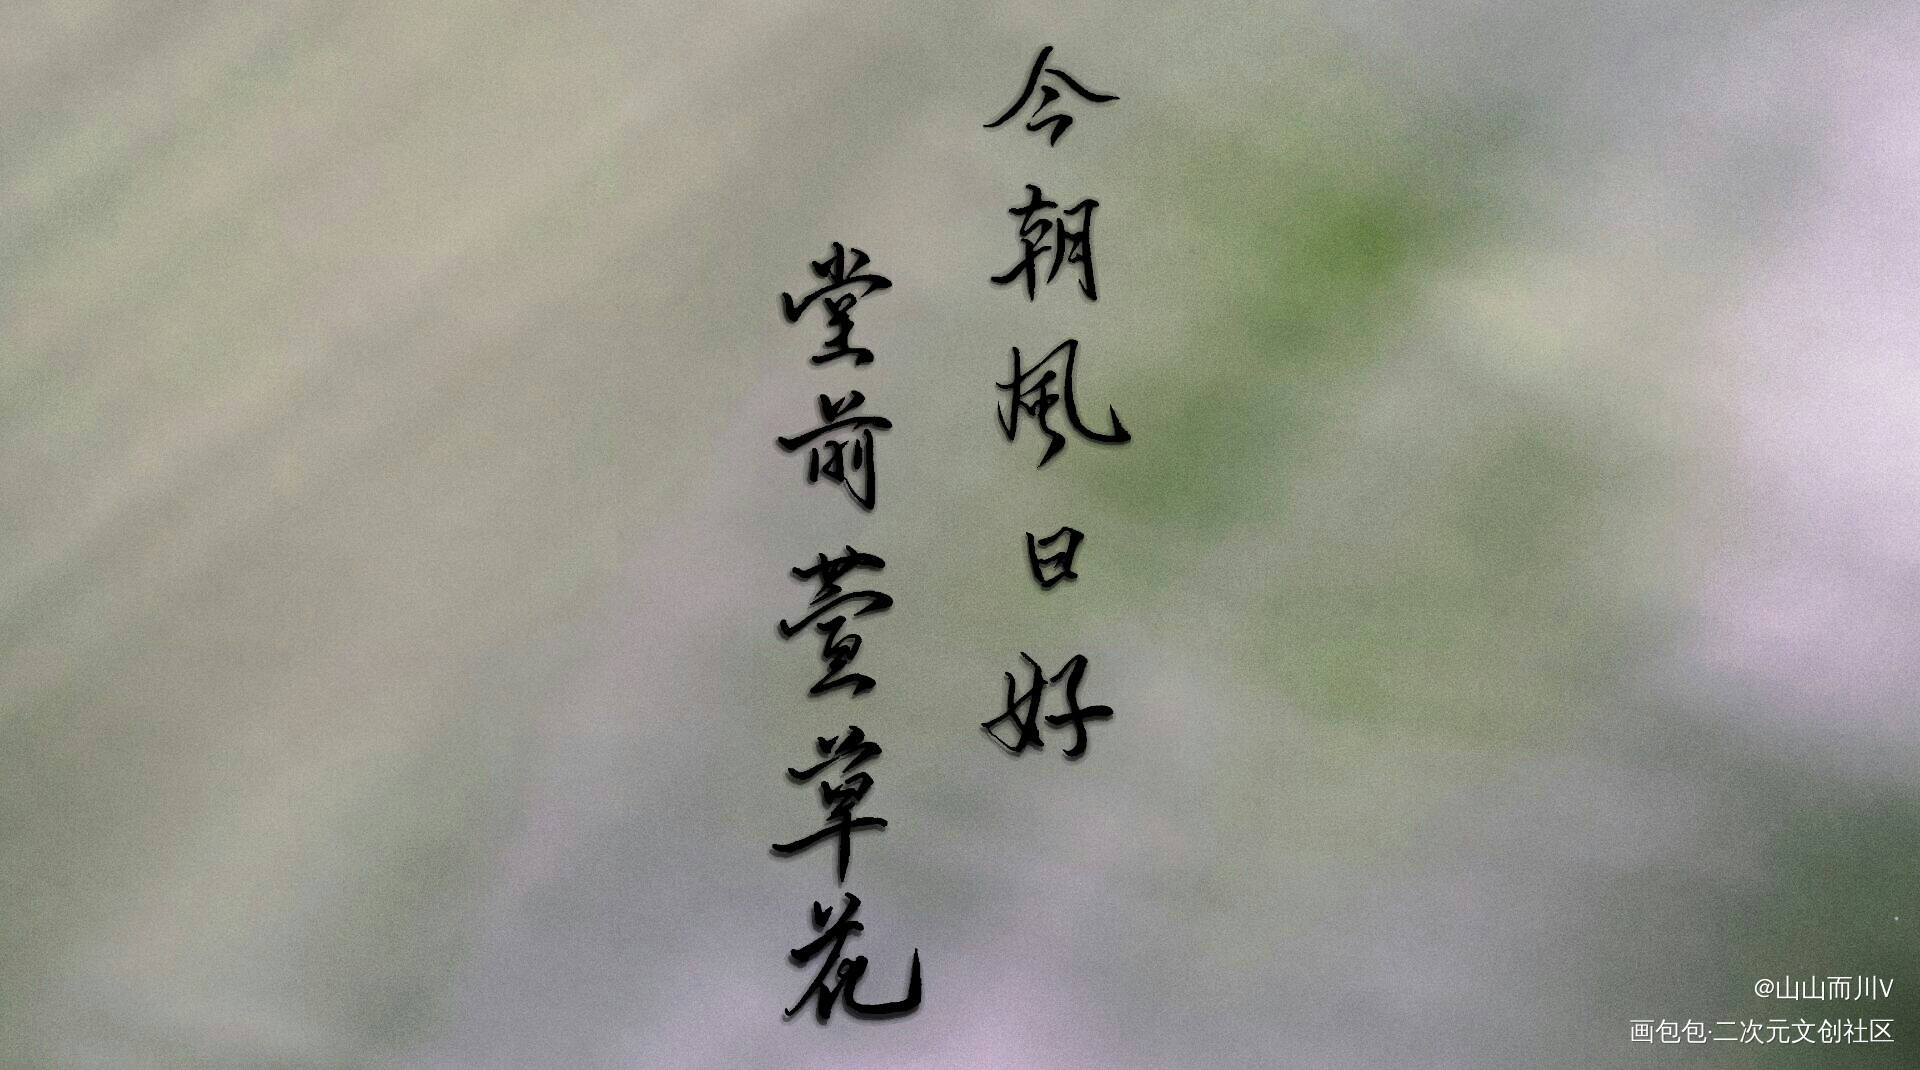 今朝風日好
堂前萱草花
@山山而川V
画包包·二次元文创社区